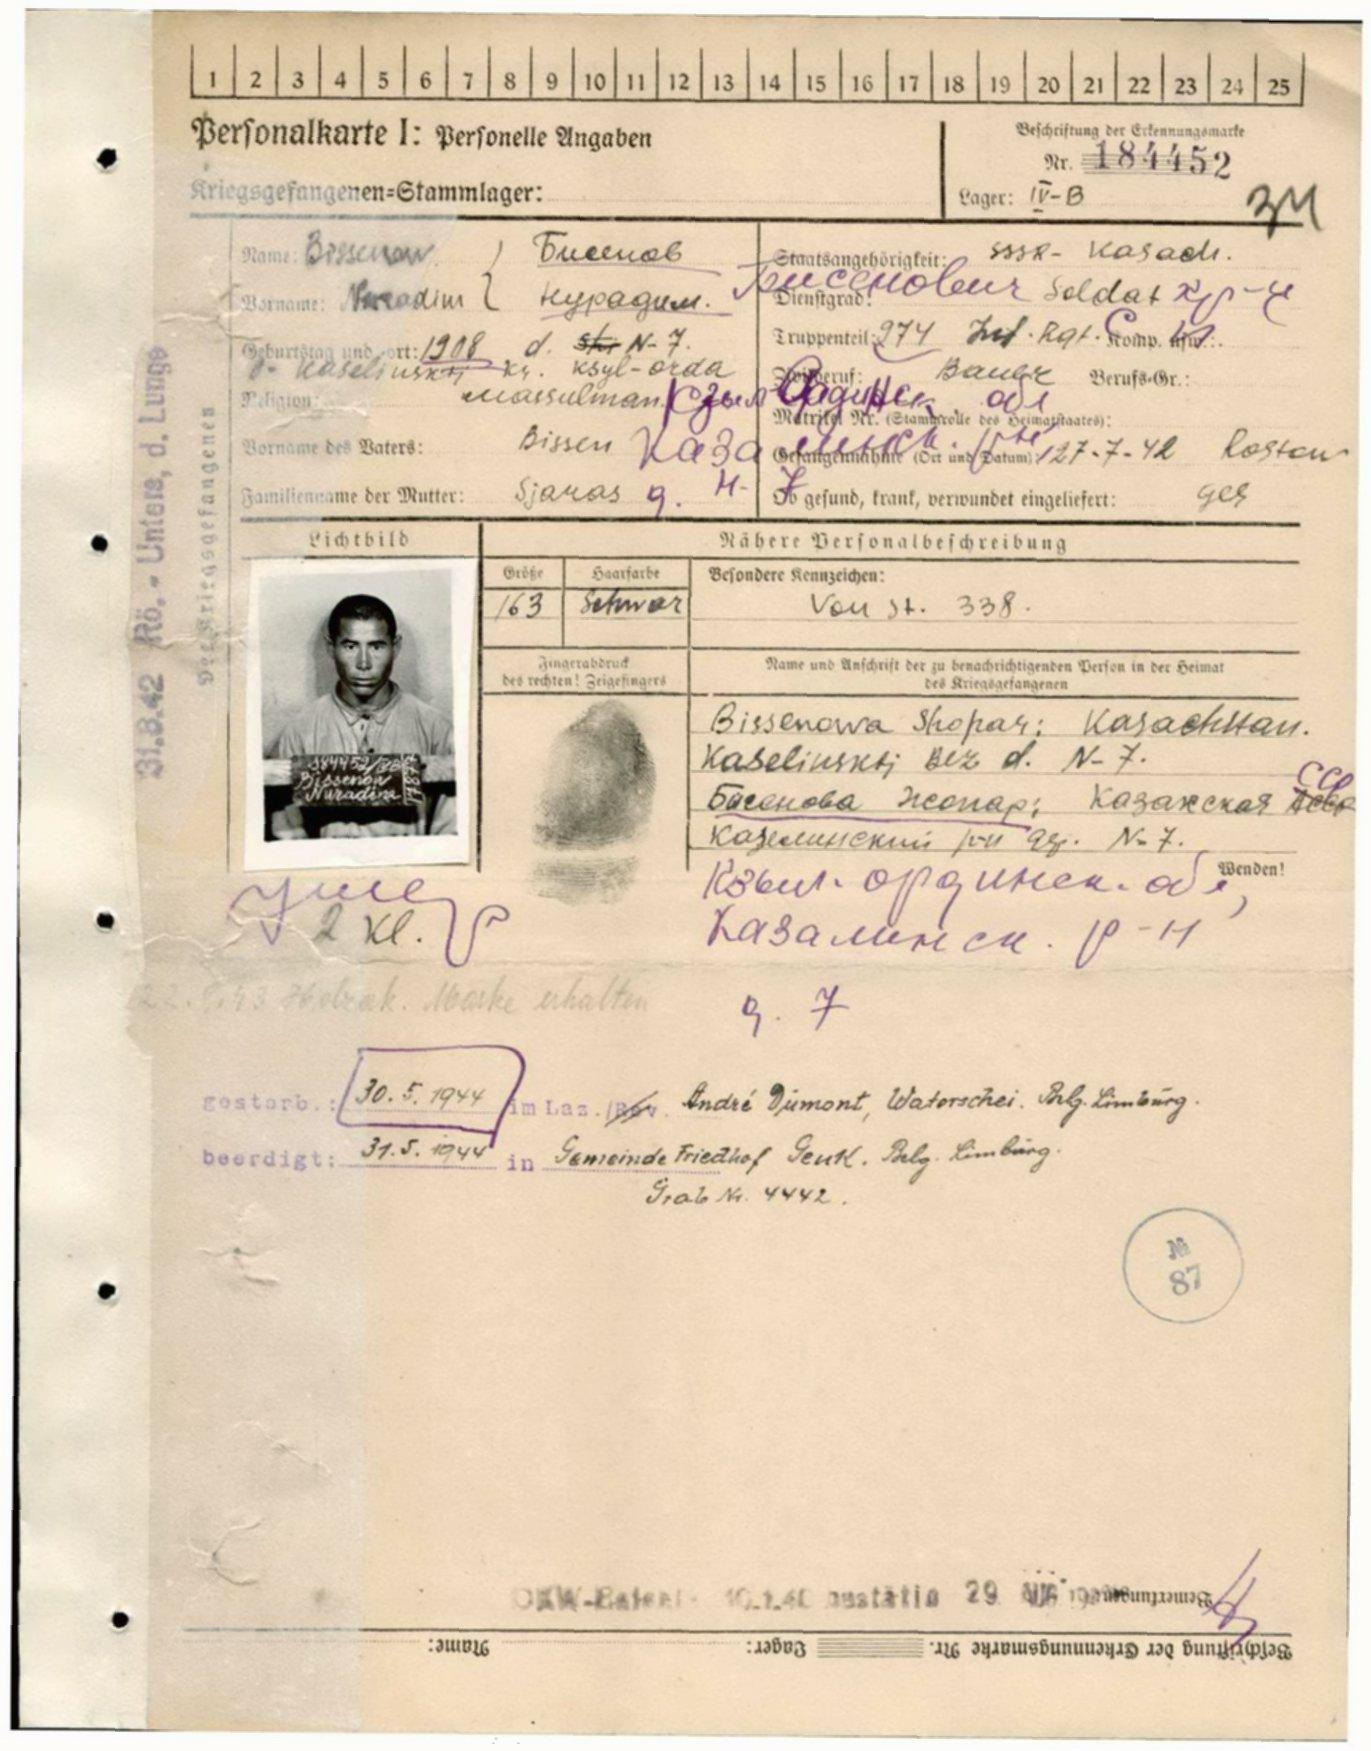 1 2 3 4 5 6 7 8 9 10 11 12 13 14 15 16 17 18 19 20 21 22 23 24 25
Personalkarte I: Personelle Angaben
Kriegsgefangenen=Stammlager:
Beschriftung der Erkennungsmarke
Nr. 184452
Lager: IV-B
Name: Bissenow Бисенов
Vorname: Nuradin Нурадин.
Geburtstag und -ort: 1908 d. N-7.
Kaselinskij kr. Ksyl-orda
Religion: Massulman
Vorname des Vaters: Bissen
Familienname der Mutter: Sjaras д. Н-7
Staatsangehörigkeit: SSSR- Kasach.
Бисенович
Dienstgrad: Soldat кр-ц
Truppenteil: 974 Inf. Rgt. Komp. usw.:
Zivilberuf: Bauer Berufs-Gr.:
Кзыл Ординск обл
Matrikel Nr. (Stammrolle des Heimatstaates):
Казалинск.
Gefangennahme (Ort und Datum): 27-7-42 Rostow
Ob gesund, krank, verwundet eingeliefert: ges
31.8.42 Rö.-Unters. d. Lunge
Des Kriegsgefangenen
Lichtbild
Nähere Personalbeschreibung
Größe Haarfarbe Besondere Kennzeichen:
163 Schwar Von St. 338.
Fingerabdruck
des rechten! Zeigefingers
Name und Anschrift der zu benachrichtigenden Person in der Heimat
des Kriegsgefangenen
184452/IVB
Bissenow
Nuradin
Bissenowa Shopar; Kasachstan.
Kaselinskij Bez d. N-7.
Бисенова Жопар; Казахская ССР
Казелинский р-н др. N-7.
Wenden!
Кзыл-ординск. обл,
Казалинск. р-н
д. 7
умер
2 Kl.
Marke erhalten
gestorb.: 30.5.1944 im Laz./Rev. André Dumont, Waterschei. Belg. Limburg.
beerdigt: 31.5.1944 in Gemeinde Friedhof Genk. Belg. Limburg.
Grab Nr. 4442.
№
87
29
Bemerkungen:
Beschriftung der Erkennungsmarke Nr. Lager: Name: